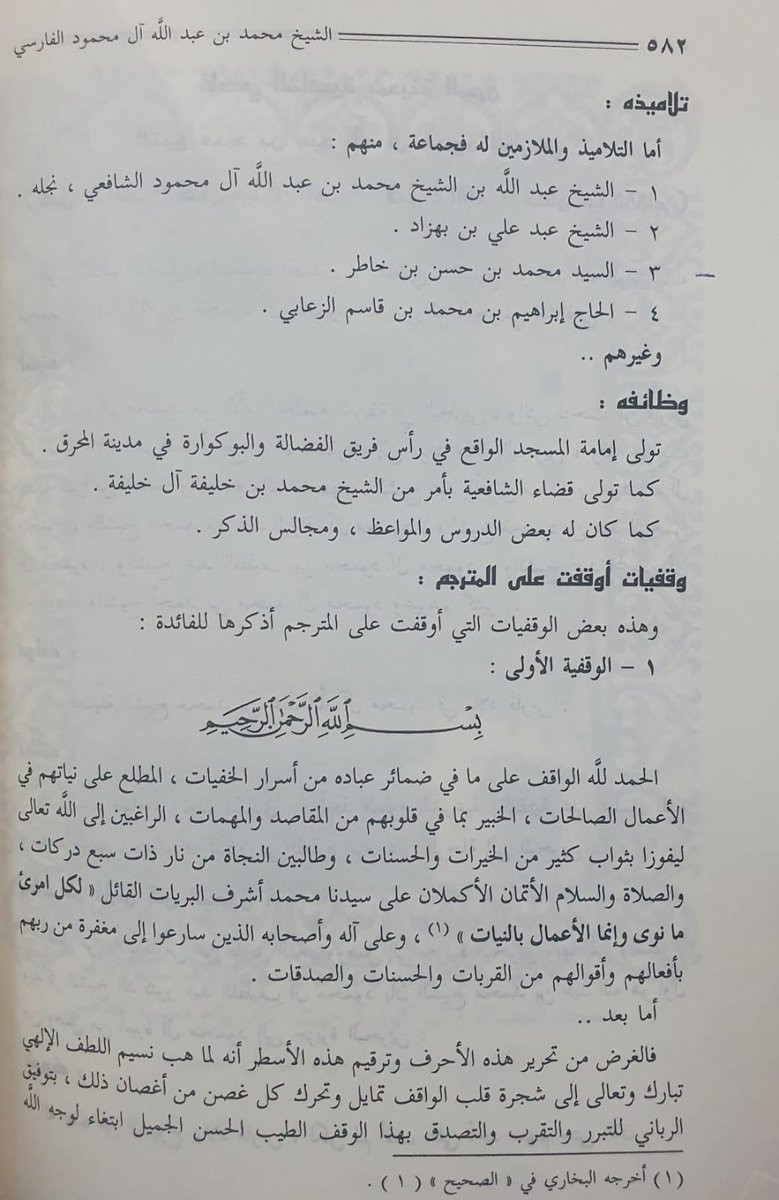 ٥٨٢ الشيخ محمد بن عبد اللَّه آل محمود الفارسي
تلاميذه :
أما التلاميذ والملازمين له فجماعة ، منهم :
١ - الشيخ عبد اللَّه بن الشيخ محمد بن عبد اللَّه آل محمود الشافعي ، نجله .
٢ - الشيخ عبد علي بن بهزاد .
٣ - السيد محمد بن حسن بن خاطر .
٤ - الحاج إبراهيم بن محمد بن قاسم الزعابي .
وغيرهم ..
وظائفه :
تولى إمامة المسجد الواقع في رأس فريق الفضالة والبوكوارة في مدينة المحرق .
كما تولى قضاء الشافعية بأمر من الشيخ محمد بن خليفة آل خليفة .
كما كان له بعض الدروس والمواعظ ، ومجالس الذكر .
وقفيات أوقفت على المترجم :
وهذه بعض الوقفيات التي أوقفت على المترجم أذكرها للفائدة :
١ - الوقفية الأولى :
بِسْمِ اللَّهِ الرَّحْمَٰنِ الرَّحِيمِ
الحمد للَّه الواقف على ما في ضمائر عباده من أسرار الخفيات ، المطلع على نياتهم في
الأعمال الصالحات ، الخبير بما في قلوبهم من المقاصد والمهمات ، الراغبين إلى اللَّه تعالى
ليفوزا بثواب كثير من الخيرات والحسنات ، وطالبين النجاة من نار ذات سبع دركات ،
والصلاة والسلام الأتمان الأكملان على سيدنا محمد أشرف البريات القائل « لكل امرئ
ما نوى وإنما الأعمال بالنيات » (١) ، وعلى آله وأصحابه الذين سارعوا إلى مغفرة من ربهم
بأفعالهم وأقوالهم من القربات والحسنات والصدقات .
أما بعد ..
فالغرض من تحرير هذه الأحرف وترقيم هذه الأسطر أنه لما هب نسيم اللطف الإلهي
تبارك وتعالى إلى شجرة قلب الواقف تمايل وتحرك كل غصن من أغصان ذلك ، بتوفيق
الرباني للتبرر والتقرب والتصدق بهذا الوقف الطيب الحسن الجميل ابتغاء لوجه اللَّه
(١) أخرجه البخاري في « الصحيح » ( ١ ) .